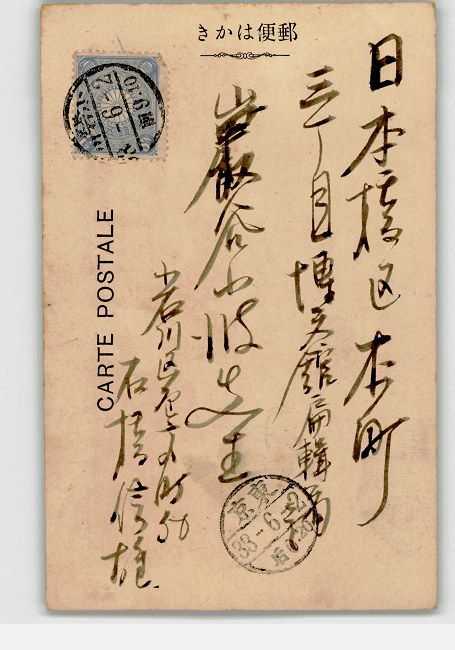 きかは便郵
CARTE POSTALE
日本橋区本町
三丁目博文館編輯局
巌谷小波先生
小石川区
石橋信雄
東京
33-6-2
6-2